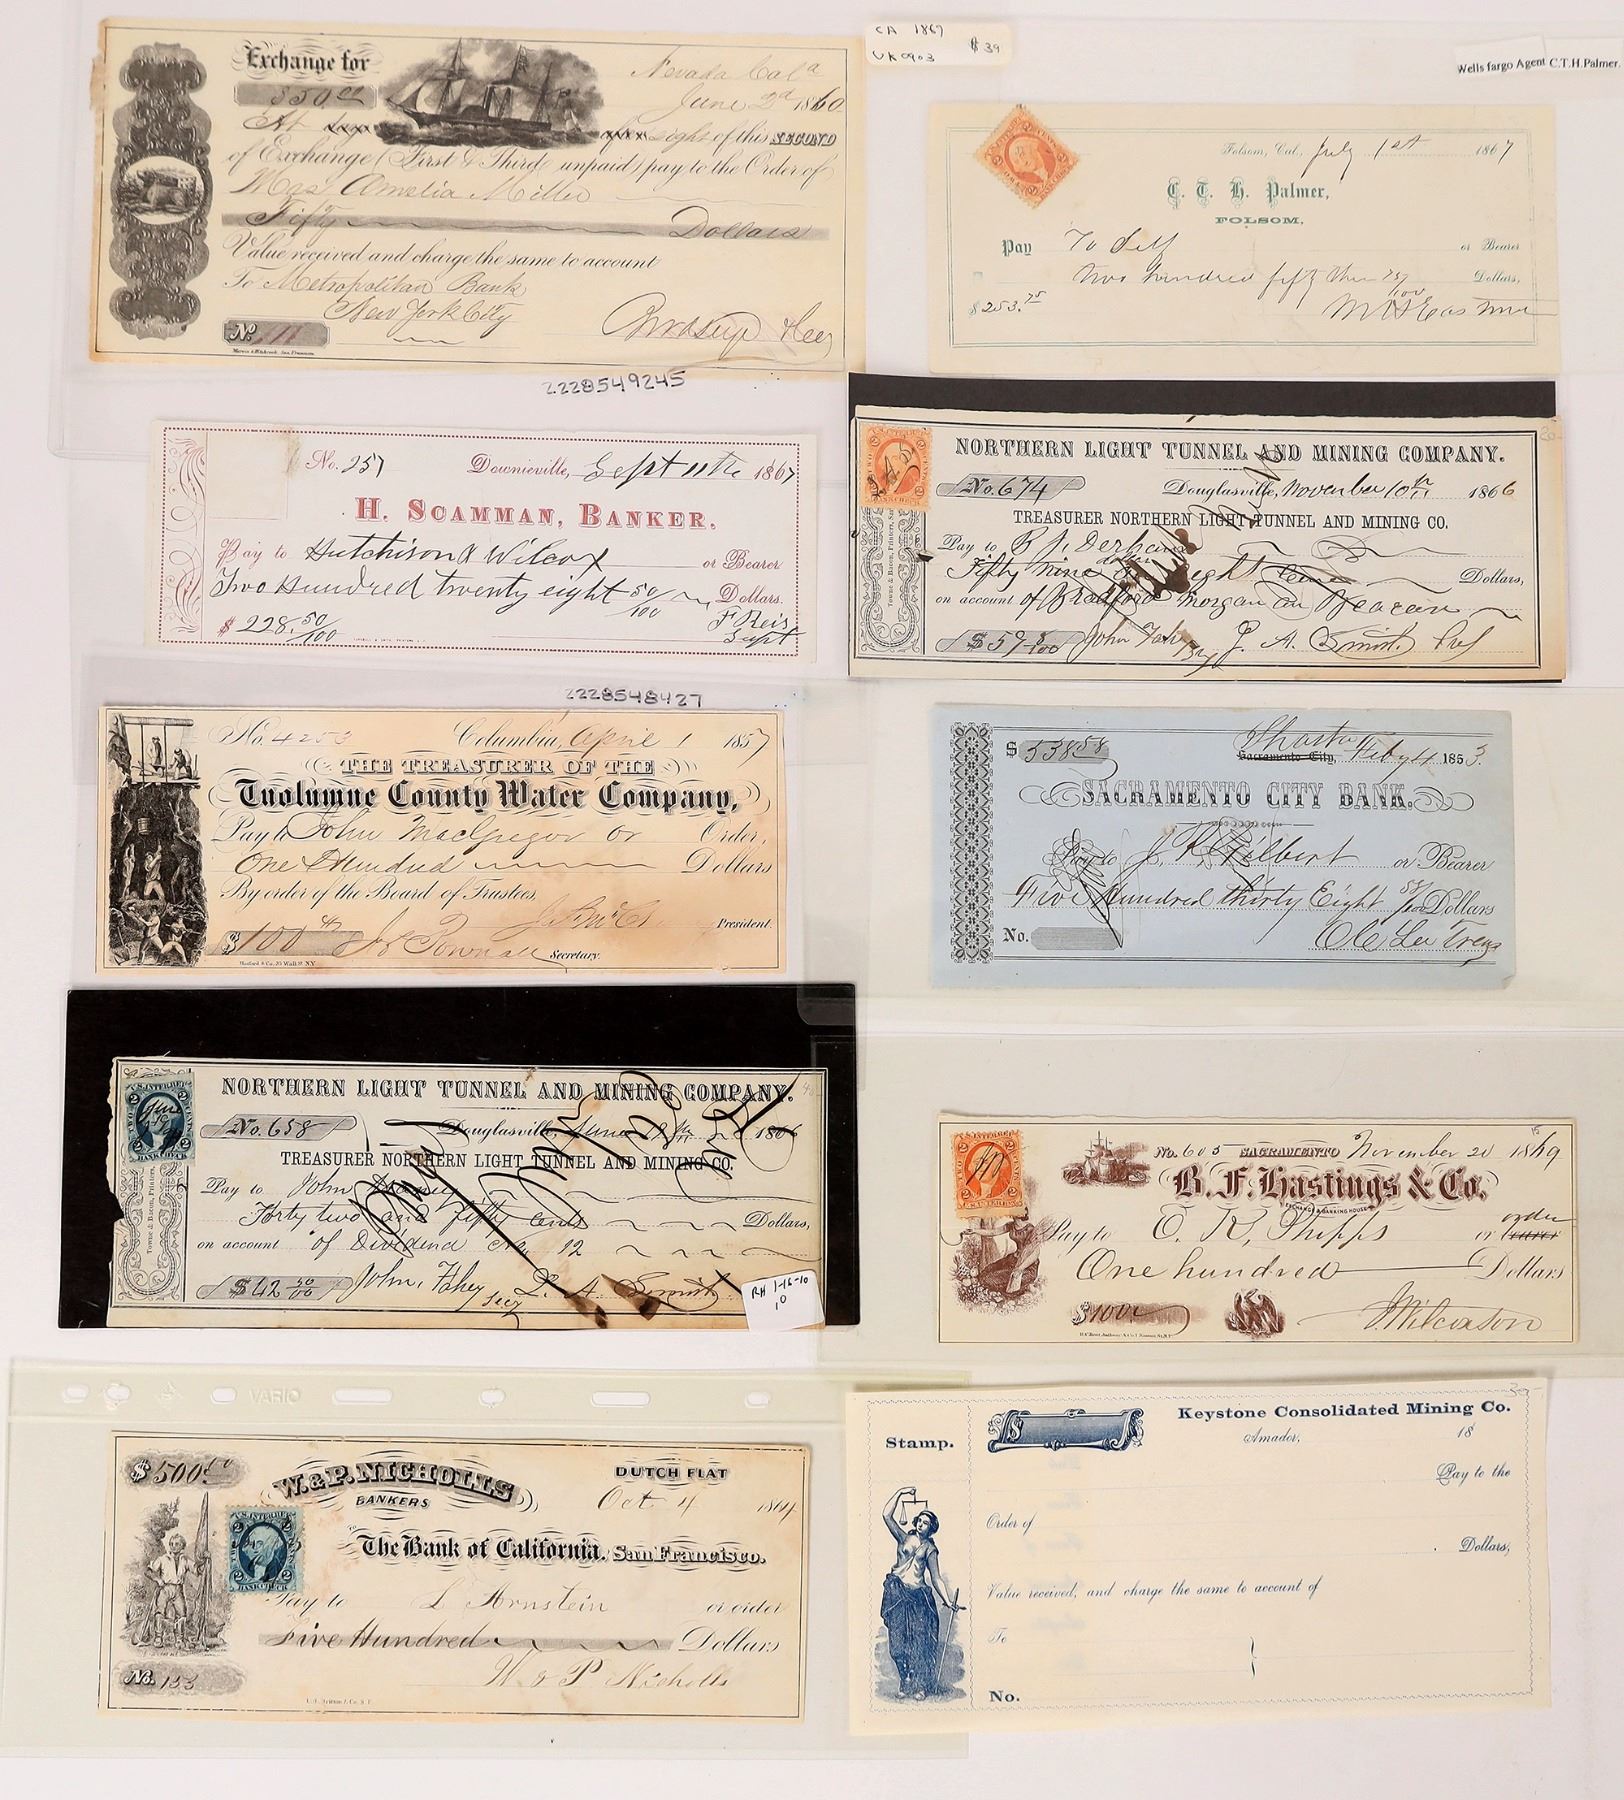 Exchange for
Nevada Cala
$50.00
June 2d 1860
At sight of this SECOND
of Exchange (First & Third unpaid) pay to the Order of
Mrs Amelia Miller
Fifty Dollars
Value received and charge the same to account
To Metropolitan Bank
New York City
No.
CA 1867
$39
Wells fargo Agent C.T.H.Palmer.
Folsom, Cal., July 1st 1867
C. T. H. Palmer,
FOLSOM,
Pay To Self or Bearer
Two hundred fifty three 75/100 Dollars,
$253.75
2228549245
No. 257 Downieville, Sept 11th 1867
H. SCAMMAN, BANKER.
Pay to Hutchison & Wilcox or Bearer
Two Hundred twenty eight 50/100 Dollars.
$228.50/100
F Reis
Supt
NORTHERN LIGHT TUNNEL AND MINING COMPANY.
No. 674 Douglasville, November 10th 1866
TREASURER NORTHERN LIGHT TUNNEL AND MINING CO.
Pay to
Fifty nine Dollars,
on account of Bradford Morgan
$59 8/100
J. A. Smith
Towne & Bacon, Printers,
2228548427
No. 4253 Columbia, April 1 1857
THE TREASURER OF THE
Tuolumne County Water Company,
Pay to John MacGregor or Order,
One Hundred Dollars
By order of the Board of Trustees,
President.
$100
Secretary.
$538 58
Shasta
Sacramento City, Feby 4 1853
SACRAMENTO CITY BANK.
Pay to J. Gilbert or Bearer
Five Hundred thirty Eight 58/100 Dollars
No.
NORTHERN LIGHT TUNNEL AND MINING COMPANY.
No. 658 Douglasville, June 1866
TREASURER NORTHERN LIGHT TUNNEL AND MINING CO.
Pay to John
Forty two and fifty cents Dollars,
on account of Dividend No. 12
$42 50/100 John Fahey
Secy
RH 1-16-10
10
Towne & Bacon, Printers,
No. 605 SACRAMENTO November 20 1869
B. F. Hastings & Co.
EXCHANGE & BANKING HOUSE
order
Pay to E. K. Phipps or bearer
One hundred Dollars
$100
J. Wilcoxson
VARIO
$500.00
W. & P. NICHOLLS
BANKERS
DUTCH FLAT
Oct 4 1864
TO
The Bank of California, San Francisco.
Pay to L Arnstein or order
Five Hundred Dollars
W & P Nicholls
No. 153
Keystone Consolidated Mining Co.
Stamp.
$
Amador, 18
Pay to the
Order of
Dollars,
Value received, and charge the same to account of
To
No.